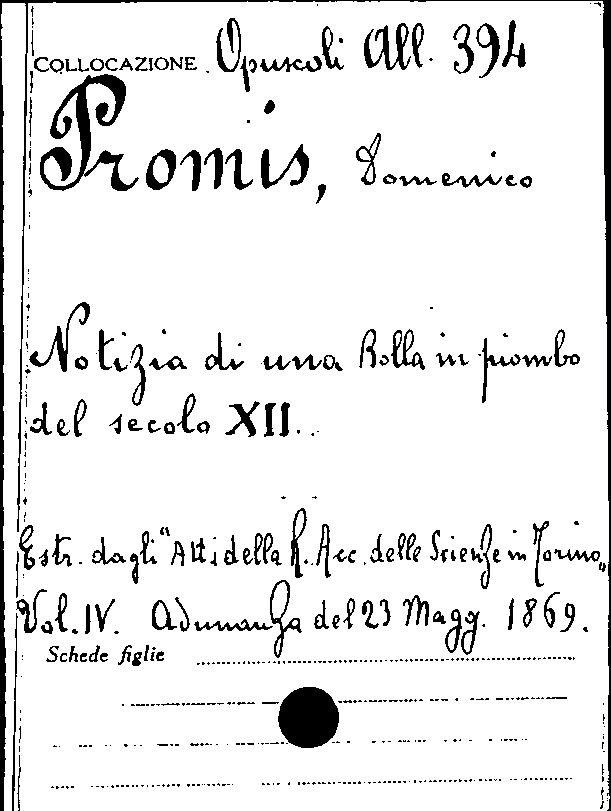 COLLOCAZIONE Opuscoli All. 394
Promis, Domenico
Notizia di una Bolla in piombo
del secolo XII.
Estr. dagli "Atti della R. Acc. delle Scienze in Torino"
Vol. IV. Adunanza del 23 Magg. 1869.
Schede figlie